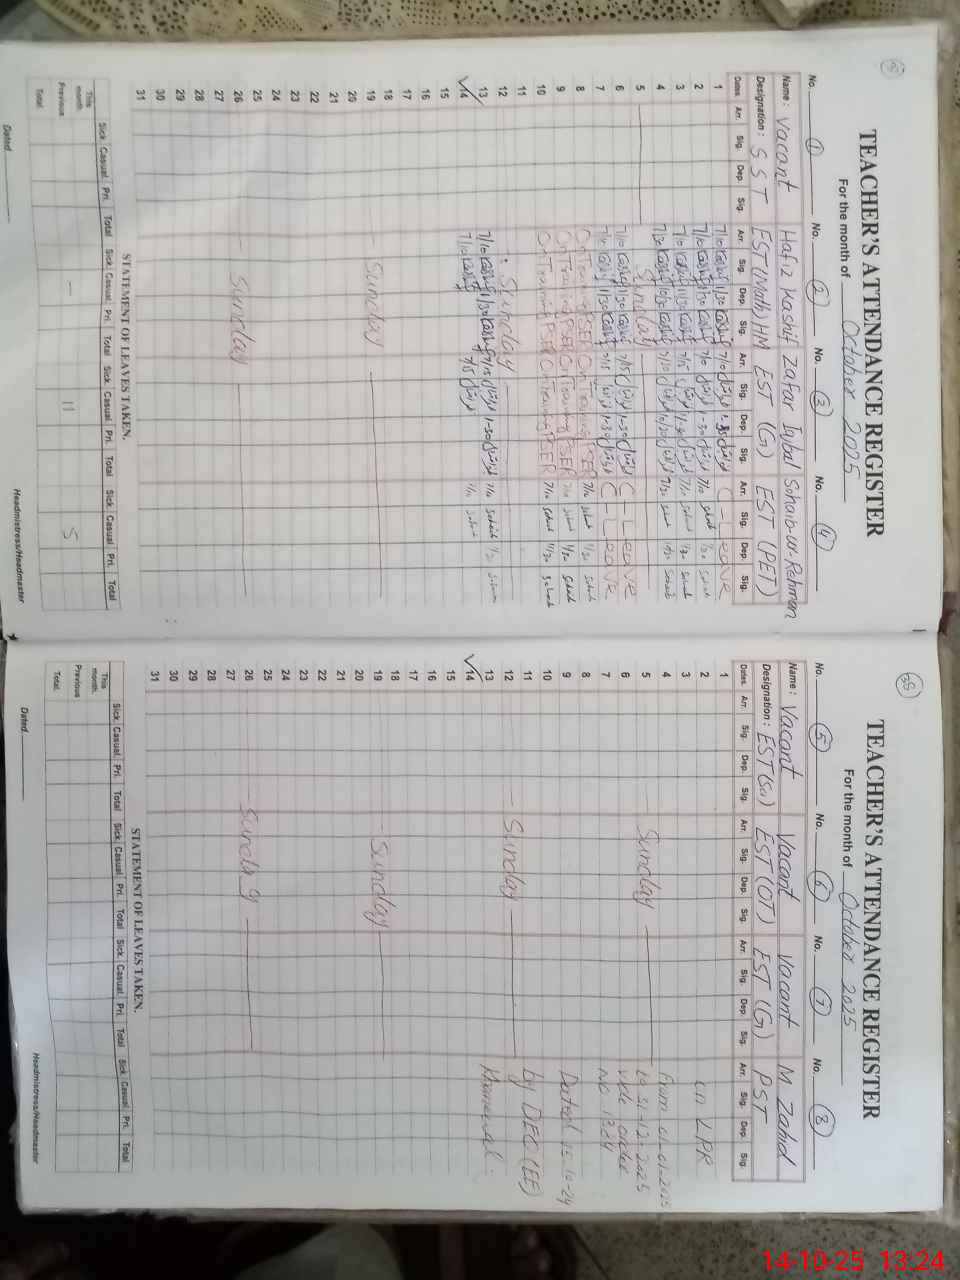 TEACHER'S ATTENDANCE REGISTER
For the month of October 2025
No. 1 No. 2 No. 3 No. 4
Name: Vacant Hafiz Kashif Zafar Iqbal Sohaib-ur-Rehman
Designation: SST EST(Math)HM EST (G) EST (PET)
Dates. Arr. Sig. Dep. Sig. Arr. Sig. Dep. Sig. Arr. Sig. Dep. Sig. Arr. Sig. Dep. Sig.
1 7/10 1/30 7/10 1-30 C-Leave
2 7/10 1/30 7/10 1-30 7/10 1/30
3 7/10 1/30 7/15 1-30 7/10 1/30
4 7/30 10/30 7/10 10/30 7/30
5 Sunday
6 7/10 1/30 7/15 1-30 C-Leave
7 7/10 1/30 7/15 1-30 C-Leave
8 On Training PSER On Training PSER 7/10 1/30
9 On Training PSER On Training PSER 7/10 1/30
10 On Training PSER On Training PSER 7/10 1/30
11
12 Sunday
13 7/10 1/30 7/15 1-30 7/10
14 7/10 7/15 7/10
15
16
17
18
19 Sunday
20
21
22
23
24
25
26 Sunday
27
28
29
30
31
STATEMENT OF LEAVES TAKEN.
Sick Casual. Pri. Total Sick Casual. Pri. Total Sick Casual. Pri. Total Sick Casual. Pri. Total
This month.
Previous — 11 5
Total.
Dated
Headmistress/Headmaster
35
TEACHER'S ATTENDANCE REGISTER
For the month of October 2025
No. 5 No. 6 No. 7 No. 8
Name: Vacant Vacant Vacant M Zahid
Designation: EST EST(OT) EST (G) PST
Dates. Arr. Sig. Dep. Sig. Arr. Sig. Dep. Sig. Arr. Sig. Dep. Sig. Arr. Sig. Dep. Sig.
1
2 on LPR
3
4 From 01-01-2025
5 Sunday to 31-12-2025
6 vide order
7 No 1364
8
9 Dated 15-10-24
10
11 by DEO (EE)
12 Sunday
13 Khanewal.
14
15
16
17
18
19 Sunday
20
21
22
23
24
25
26 Sunday
27
28
29
30
31
STATEMENT OF LEAVES TAKEN.
Sick Casual. Pri. Total Sick Casual. Pri. Total Sick Casual. Pri. Total Sick Casual. Pri. Total
This month.
Previous
Total.
Dated
Headmistress/Headmaster
14-10-25 13:24